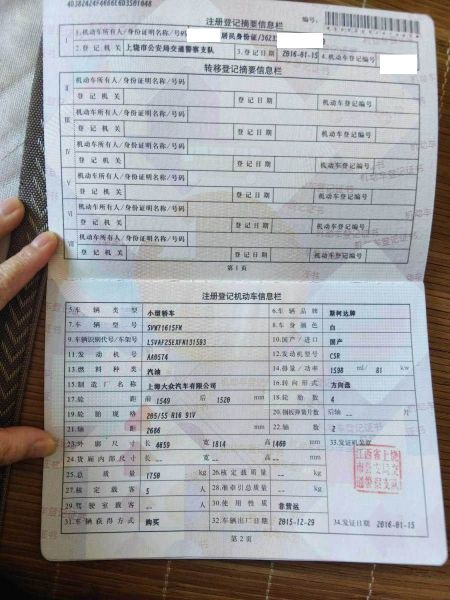 注册登记摘要信息栏
I 1.机动车所有人/身份证明名称/号码 居民身份证/3623
2.登记机关 上饶市公安局交通警察支队 3.登记日期 2016-01-15 4.机动车登记编号
转移登记摘要信息栏
II 机动车所有人/身份证明名称/号码
登记机关 登记日期 机动车登记编号
III 机动车所有人/身份证明名称/号码
登记机关 登记日期 机动车登记编号
IV 机动车所有人/身份证明名称/号码
登记机关 登记日期 机动车登记编号
V 机动车所有人/身份证明名称/号码
登记机关 登记日期 机动车登记编号
VI 机动车所有人/身份证明名称/号码
登记机关 登记日期 机动车登记编号
VII 机动车所有人/身份证明名称/号码
登记机关 登记日期 机动车登记编号
第1页
注册登记机动车信息栏
5.车辆类型 小型轿车 6.车辆品牌 斯柯达牌
7.车辆型号 SVW71615FM 8.车身颜色 白
9.车辆识别代号/车架号 10.国产/进口 国产
11.发动机号 AA0574 12.发动机型号 CSR
13.燃料种类 汽油 14.排量/功率 1598 ml/ 81 kw
15.制造厂名称 上海大众汽车有限公司 16.转向形式 方向盘
17.轮距 前 1549 后 1520 mm 18.轮胎数 4
19.轮胎规格 205/55 R16 91V 20.钢板弹簧片数 后轴 -- 片
21.轴距 2686 mm 22.轴数 2
23.外廓尺寸 长 4659 宽 1814 高 1460 mm 33.发证机关章
24.货厢内部尺寸 长 -- 宽 -- 高 -- mm
25.总质量 1750 kg 26.核定载质量 -- kg
27.核定载客 5 人 28.准牵引总质量 -- kg
29.驾驶室载客 -- 人 30.使用性质 非营运
31.车辆获得方式 购买 32.车辆出厂日期 2015-12-29 34.发证日期 2016-01-15
第2页